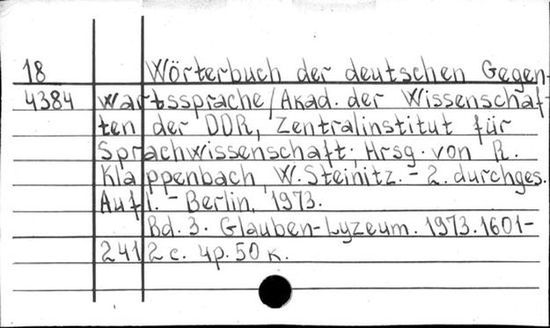 18 Wörterbuch der deutschen Gegen-
4384 wartssprache/Akad. der Wissenschaf-
ten der DDR, Zentralinstitut für
Sprachwissenschaft; Hrsg. von R.
Klappenbach, W. Steinitz. - 2. durchges.
Aufl. - Berlin, 1973.
Bd. 3. Glauben-Lyzeum. 1973. 1601-
2412 c. 4p. 50 к.